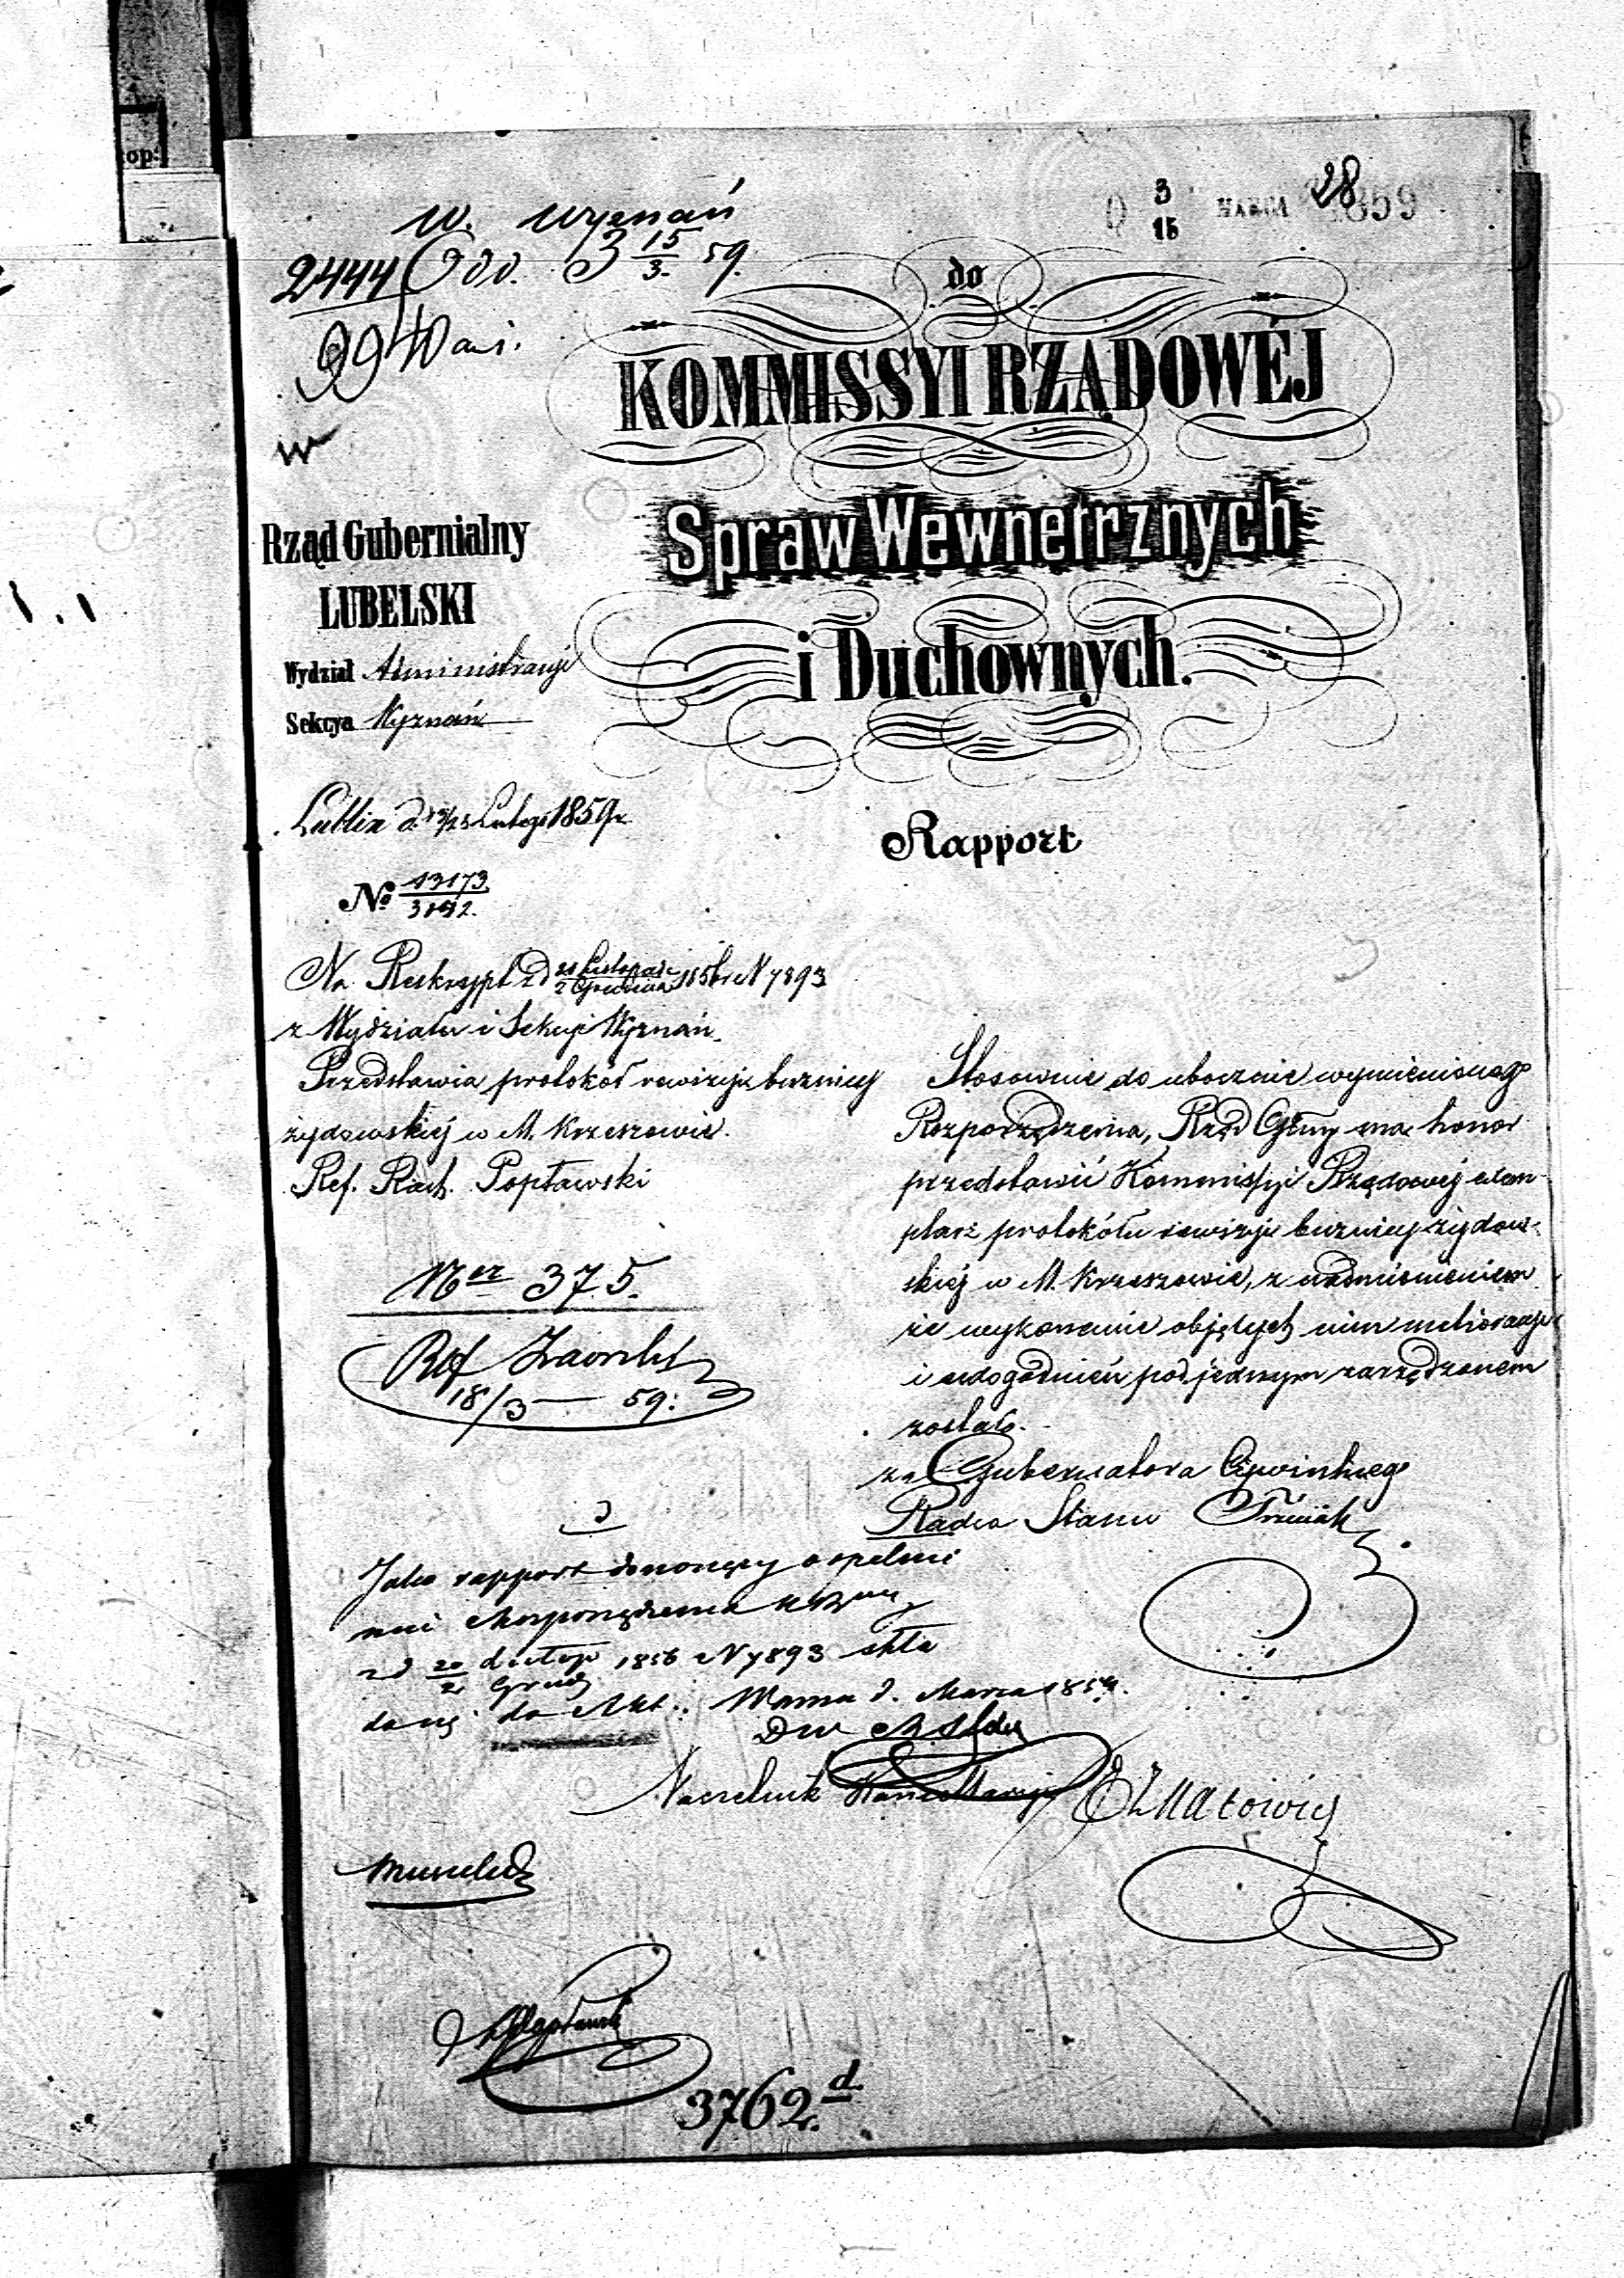 op:
W. Wyznań
3
15 MARCA 1859
28
2444 Odd. 3 15/3. 59.
9940
do
KOMMISSYI RZĄDOWÉJ
Spraw Wewnetrznych
i Duchownych.
Rząd Gubernialny
LUBELSKI
Wydział Administracyi
Sekcya Wyznań
Lublin d. 13/25 Lutego 1859 r.
Rapport
No 13173
Na Reskrypt z d 20 Listopada / 2 Grudnia 1856 r N 7893
z Wydziału i Sekcyi Wyznań.
Przedstawia protokół rewizyi buznicy
żydowskiej w M. Krzeszowie.
Ref. Rach. Popławski
Stosownie do ubocznie wymienionego
Rozporządzenia, Rząd Gbny ma honor
przedstawić Kommissyi Rządowej exem-
plarz protokółu rewizyi buznicy żydow-
skiej w M. Krzeszowie, z nadmienieniem
że wykonanie objętych nim melioracyi
i udogodnień pod jednym zarządzonem
zostało.
Ner 375.
Ref
18/3 59.
za Gubernatora Cywilnego
Radca Stanu
Jako rapport donoszący o spełnie
niu Rozporządzenia
z d 20/2 Listop Grud 1856 N 7893 skła
da się do Akt. Warsza d. Marca 1859.
Naczelnik Kancellaryi
3762.d